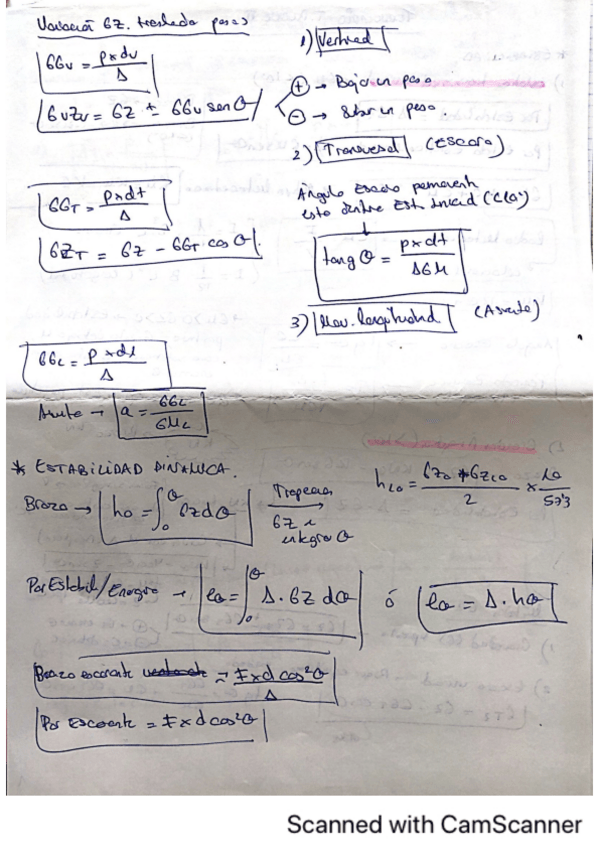 Variación GZ. traslado pesos
1) Vertical
GGv = p x dv / Δ
GvZv = GZ ± GGv sen θ
+ → Bajar un peso
- → Subir un peso
2) Transversal (Escora)
GGT = p x dt / Δ
GZT = GZ - GGT cos θ
Ángulo Escora permanente
esto dentre Est. inicial (<10°)
tang θ = p x dt / ΔGM
3) Mov. longitudinal (Asiento)
GGL = p x dl / Δ
Asiento → a = GGL / GML
* ESTABILIDAD DINÁMICA.
Brazo → hθ = ∫₀^θ GZ dθ
Trapecios
GZ e
integro θ
h10 = GZ0 + GZ10 / 2 x 10 / 57'3
Par Estabil/Energía → eθ = ∫₀^θ Δ·GZ dθ ó eθ = Δ·hθ
Brazo escorante = F x d cos²θ / Δ
Par Escorante = F x d cos²θ
Scanned with CamScanner